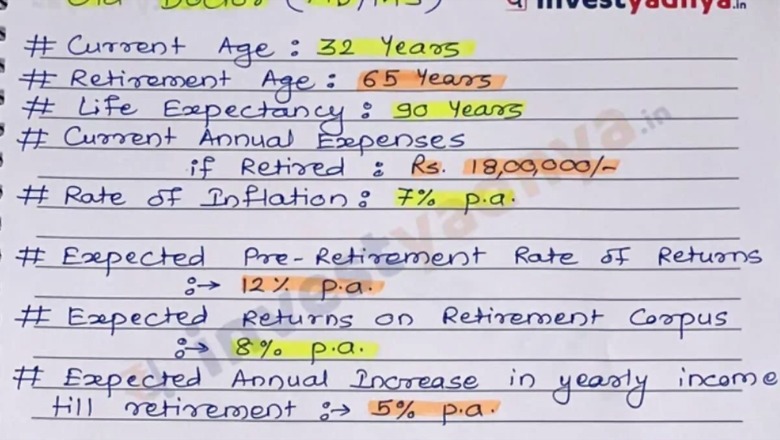 Old Doctor (MD/MS) investyadnya.in
# Current Age : 32 Years
# Retirement Age : 65 Years
# Life Expectancy : 90 Years
# Current Annual Expenses
if Retired : Rs. 18,00,000/-
# Rate of Inflation : 7% p.a.
# Expected Pre-Retirement Rate of Returns
:→ 12% p.a.
# Expected Returns on Retirement Corpus
:→ 8% p.a.
# Expected Annual Increase in yearly income
till retirement :→ 5% p.a.
investyadnya.in